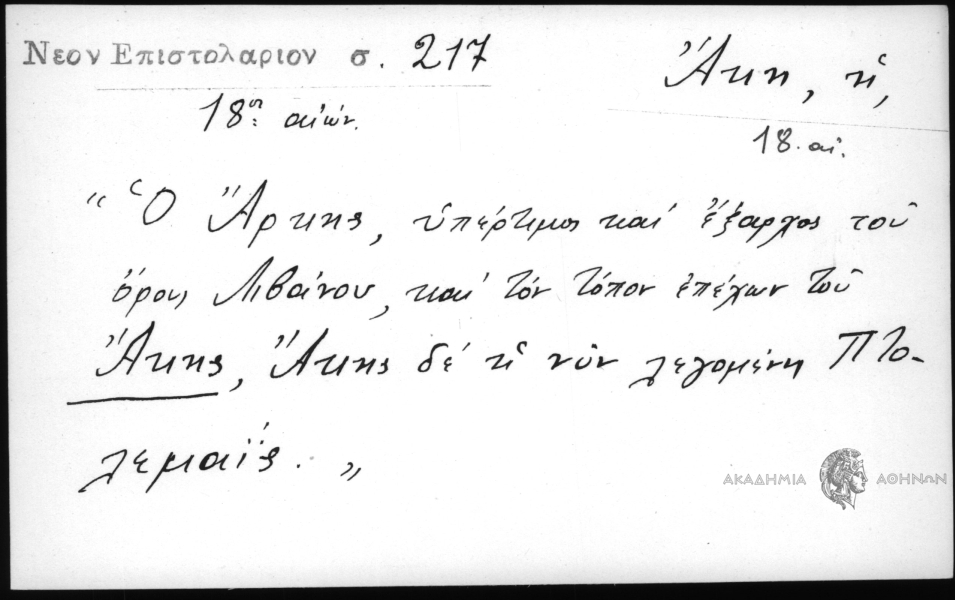 Νεον Επιστολαριον σ. 217
Ἄκη, ἡ,
18ης αἰών.
18. αἰ.
“ Ὁ Ἄρκης, ὑπέρτιμος καί ἔξαρχος τοῦ
ὄρους Λιβάνου, καί τόν τόπον ἐπέχων τοῦ
Ἄκης, Ἄκης δέ ἡ νῦν λεγομένη Πτο-
λεμαΐς. „
ΑΚΑΔΗΜΙΑ ΑΘΗΝΩΝ